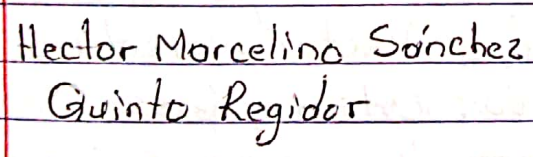 Hector Marcelino Sánchez
Quinto Regidor